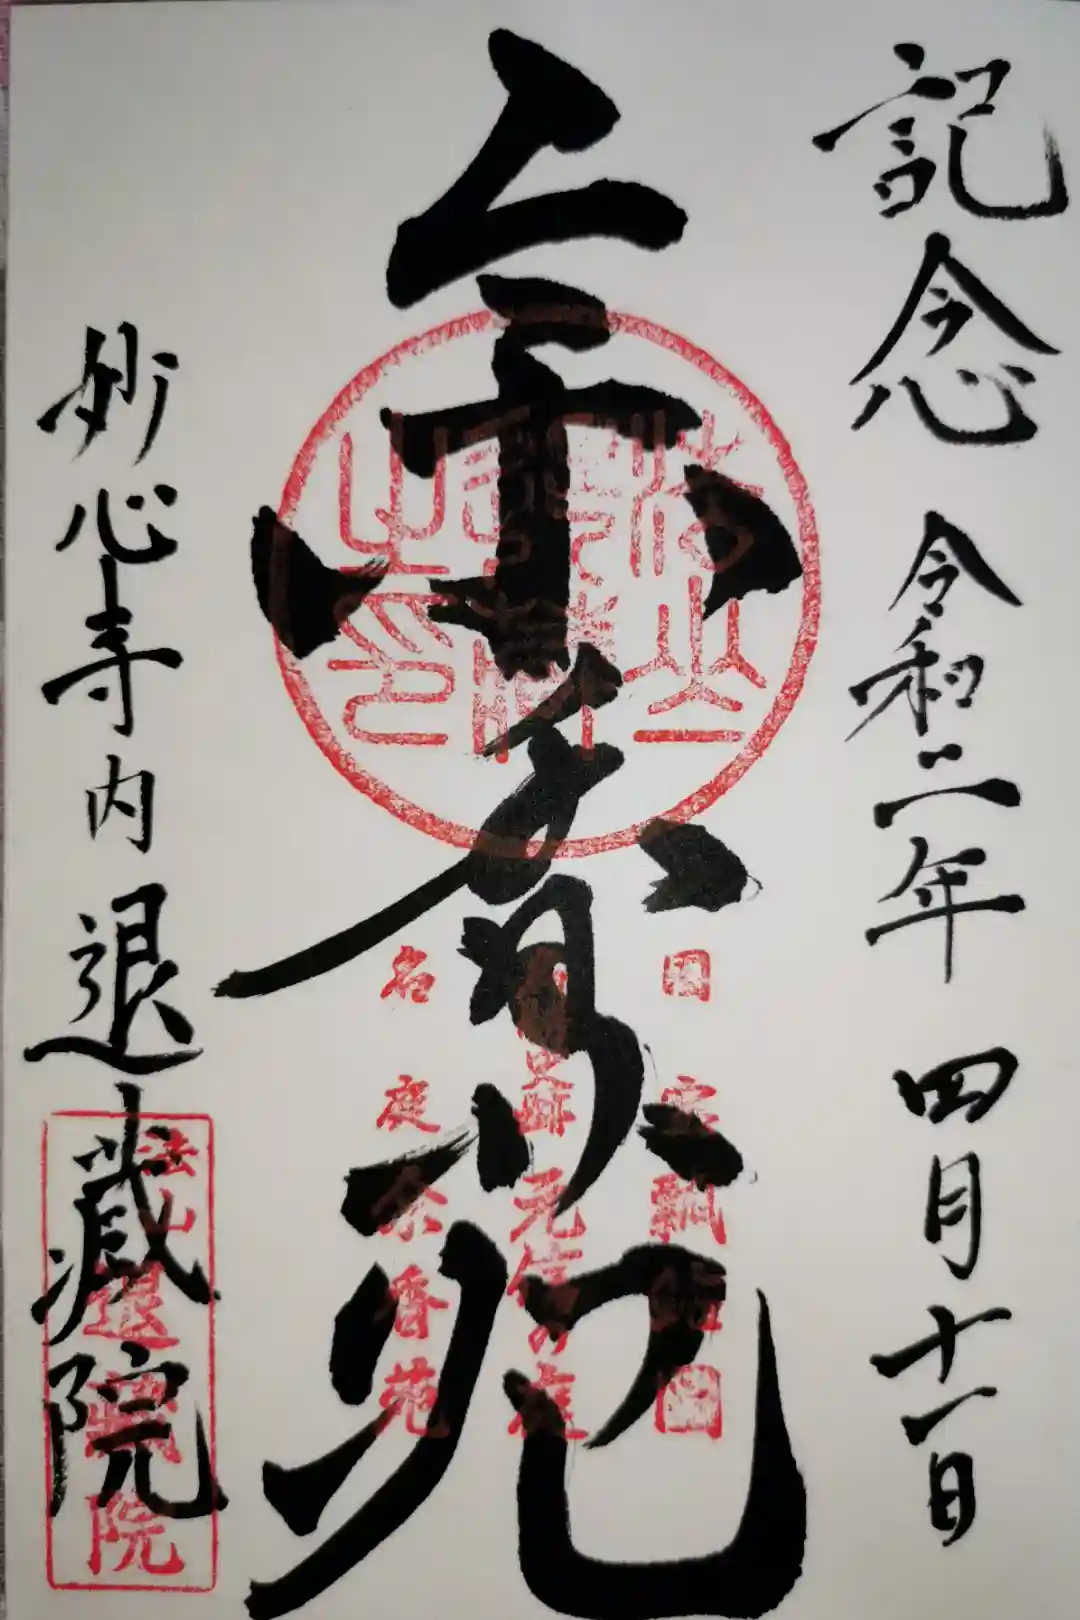 記念 令和二年 四月十一日
余香苑
国宝瓢鮎図
史跡 元信の庭
名庭 余香苑
妙心寺内 退蔵院
法山 退蔵院